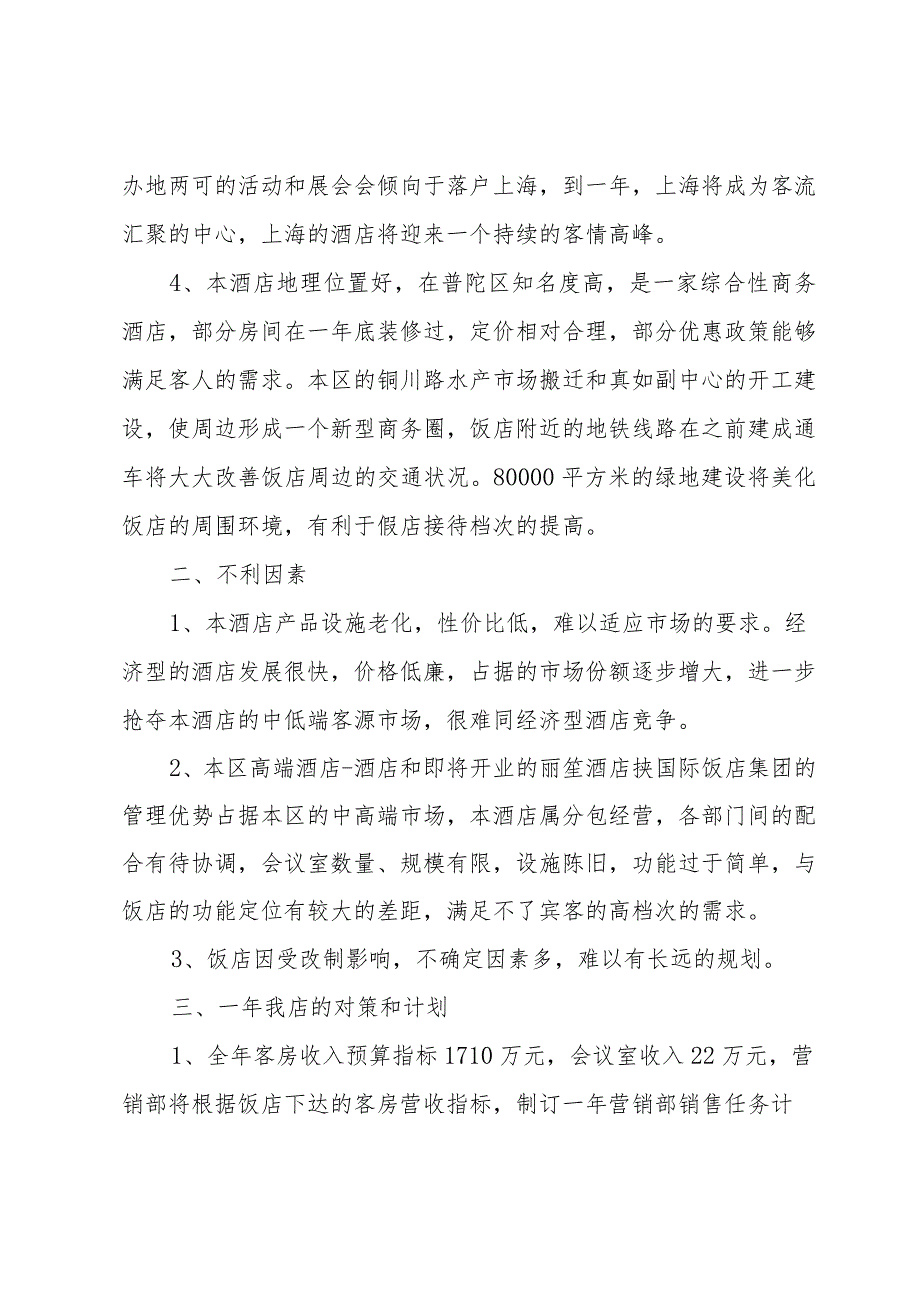 办地两可的活动和展会会倾向于落户上海，到一年，上海将成为客流
汇聚的中心，上海的酒店将迎来一个持续的客情高峰。
4、本酒店地理位置好，在普陀区知名度高，是一家综合性商务
酒店，部分房间在一年底装修过，定价相对合理，部分优惠政策能够
满足客人的需求。本区的铜川路水产市场搬迁和真如副中心的开工建
设，使周边形成一个新型商务圈，饭店附近的地铁线路在之前建成通
车将大大改善饭店周边的交通状况。80000 平方米的绿地建设将美化
饭店的周围环境，有利于假店接待档次的提高。
二、不利因素
1、本酒店产品设施老化，性价比低，难以适应市场的要求。经
济型的酒店发展很快，价格低廉，占据的市场份额逐步增大，进一步
抢夺本酒店的中低端客源市场，很难同经济型酒店竞争。
2、本区高端酒店-酒店和即将开业的丽笙酒店挟国际饭店集团的
管理优势占据本区的中高端市场，本酒店属分包经营，各部门间的配
合有待协调，会议室数量、规模有限，设施陈旧，功能过于简单，与
饭店的功能定位有较大的差距，满足不了宾客的高档次的需求。
3、饭店因受改制影响，不确定因素多，难以有长远的规划。
三、一年我店的对策和计划
1、全年客房收入预算指标 1710 万元，会议室收入 22 万元，营
销部将根据饭店下达的客房营收指标，制订一年营销部销售任务计